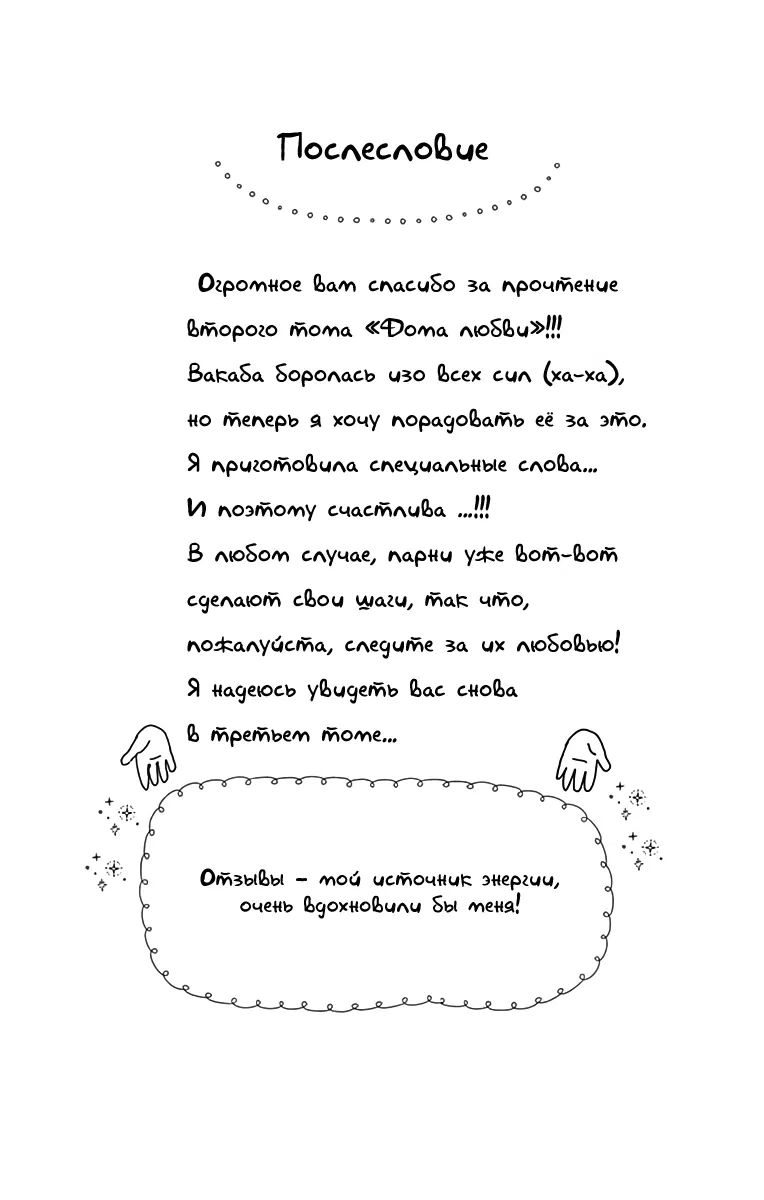 Послесловие
Огромное вам спасибо за прочтение
второго тома «Дома любви»!!!
Вакаба боролась изо всех сил (ха-ха),
но теперь я хочу порадовать её за это.
Я приготовила специальные слова...
И поэтому счастлива ...!!!
В любом случае, парни уже вот-вот
сделают свои шаги, так что,
пожалуйста, следите за их любовью!
Я надеюсь увидеть вас снова
в третьем томе...
Отзывы – мой источник энергии,
очень вдохновили бы меня!